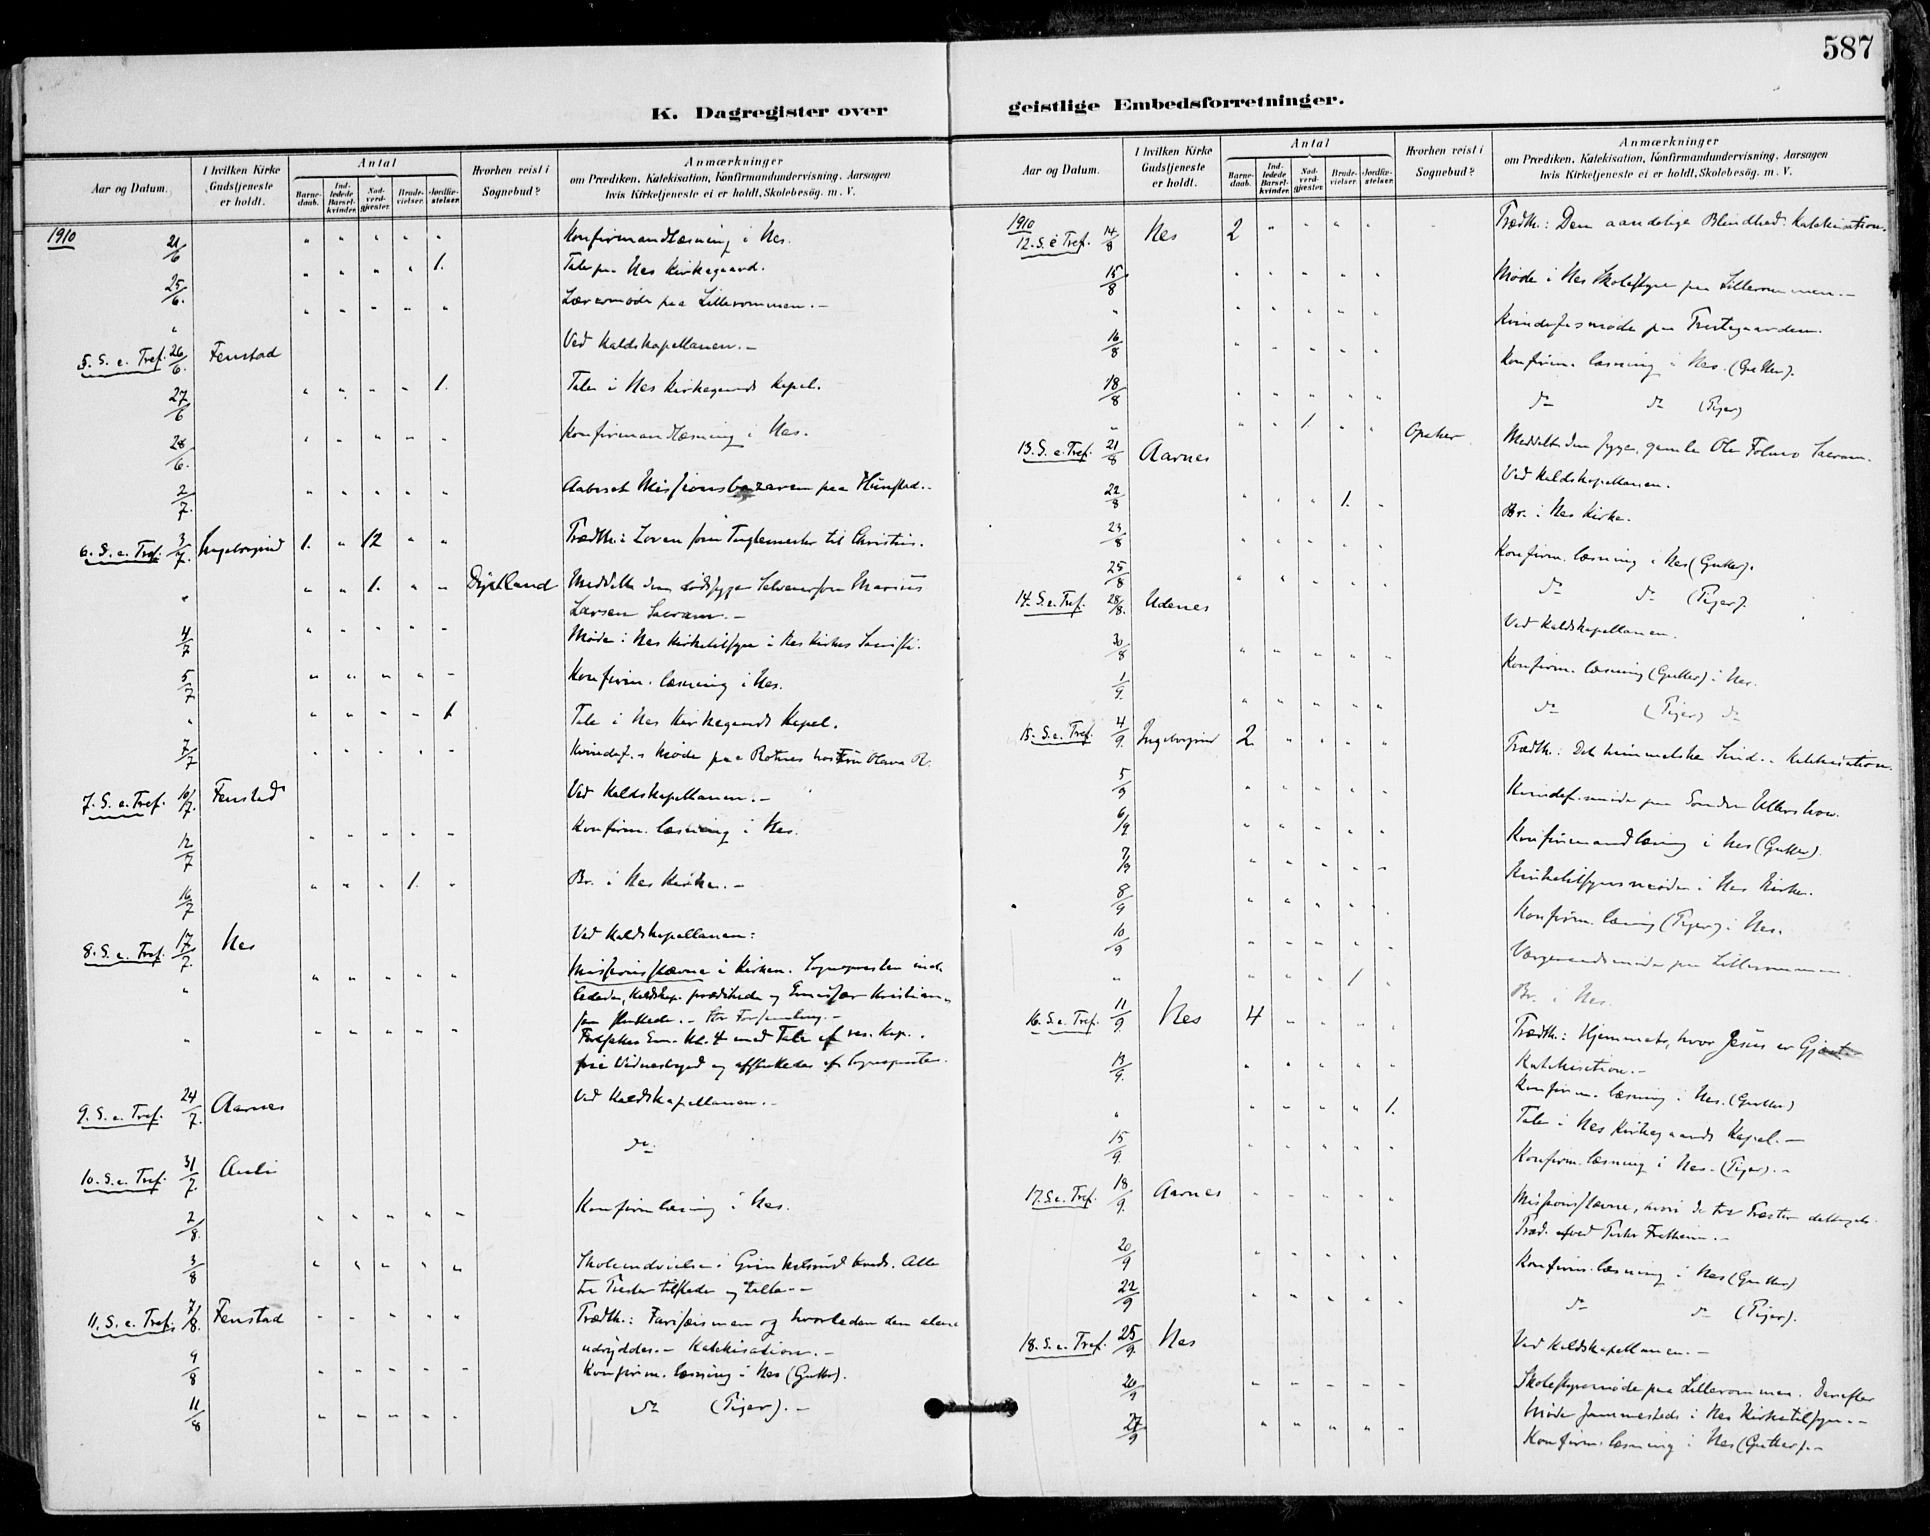 587
K. Dagregister over
geistlige Embedsforretninger.
Aar og Datum.
I hvilken Kirke Gudstjeneste er holdt.
Antal
Barne-daab.
Ind-ledede Barsel-kvinder.
Nad-verd-gjæster.
Brude-vielser.
Jordfæ-stelser.
Hvorhen reist i Sognebud?
Anmærkninger
om Prædiken, Katekisation, Konfirmandundervisning, Aarsagen
hvis Kirketjeneste ei er holdt, Skolebesög, m. V.
1910
21/6 " " " " " Konfirmandlæsning i Nes.
" " " " 1. Tale paa Nes Kirkegaard.
25/6. " " " " " Lærermøde paa Lillerommen. –
"
5. S. e. Tref. 26/6. Fenstad Ved Kaldskapellanen. –
27/6 " " " " 1. Tale i Nes Kirkegaards Kapel.
28/6. " " " " " Konfirmandlæsning i Nes.
2/7. " " " " " Aabnet Missionsbazaren paa Hunstad. –
6. S. e. Tref. 3/7. Ingeborgrud 1. " 12 " " Prædik: Loven som Tugtemester til Christus.
" " " 1. " " Dystland Meddelte den Marius
Larsen Sacram. –
4/7 " " " " " Møde i Nes Kirketilsyn i Nes Kirkes Sacristi.
5/7 " " " " " Konfirm. læsning i Nes.
" " " " " 1. Tale i Nes Kirkegaards Kapel.
7/7 " " " " " Kvindef.s Møde paa Rotnes hos Fru Olava R.
7. S. e. Tref. 10/7. Fenstad Ved Kaldskapellanen. –
12/7 " " " " " Konfirm. læsning i Nes.
16/7 " " " 1. " Br. i Nes Kirke. –
8. S. e. Tref. 17/7. Nes Ved Kaldskapellanen:
" " " " " " Missionsstævne i Kirken. Sognepresten ind-
ledede, Kaldskap. prædikede og Emissær Kristian-
sen sluttede. – Stor Forsamling. –
" " " " " " Em. Kl. 4 med Tale af res. Kap.
frie Vidnesbyrd og afsluttedes af Sognepresten.
9. S. e. Tref. 24/7. Aarnes Ved Kaldskapellanen. –
10. S. e. Tref. 31/7. Auli do
2/8. " " " " " Konfirmlæsning i Nes.
3/8 " " " " " Skoleindvielse i Grinkelsrud kreds. Alle
tre Prester tilstede og talte. –
11. S. e. Tref. 7/8. Fenstad " " " " " Prædik: Farisæismen og hvorledes den alene
udryddes. – Katekisation. –
9/8 " " " " " Konfirm. læsning i Nes (Gutter).
11/8 " " " " " do (Piger). –
Aar og Datum.
I hvilken Kirke Gudstjeneste er holdt.
Antal
Barne-daab.
Ind-ledede Barsel-kvinder.
Nad-verd-gjæster.
Brude-vielser.
Jordfæ-stelser.
Hvorhen reist i Sognebud?
Anmærkninger
om Prædiken, Katekisation, Konfirmandundervisning, Aarsagen
hvis Kirketjeneste ei er holdt, Skolebesög, m. V.
1910
12. S. e Tref. 14/8 Nes 2 " " " " Prædik.: Den aandelige Blindhed. Katekisation.
15/8 " " " " " Møde i Nes Skolestyre paa Lillerommen. –
" " " " " " Kvindef.s møde paa Prestegaarden.
16/8 " " " " " Konfirm. læsning i Nes. (Gutter).
18/8 " " " " " do do (Piger)
" " " 1 " " Opaker Meddelte den syge, gamle Ole Sacram.
13. S. e. Tref. 21/8 Aarnes Ved Kaldskapellanen.
22/8 " " " 1. " Br. i Nes Kirke.
23/8 " " " " " Konfirm. læsning i Nes (Gutter).
25/8 " " " " " do do (Piger).
14. S. e. Tref. 28/8. Udenes Ved Kaldskapellanen.
30/8 " " " " " Konfirm. læsning (Gutter) i Nes.
1/9. " " " " " do (Piger) do
15. S. e. Tref. 4/9. Ingeborgrud 2. " " " " Prædik: Det himmelske Sind. – Katekisation.
5/9 " " " " " Kvindef.møde paa Søndre Ullershov.
6/9 " " " " " Konfirmandlæsning i Nes (Gutter).
7/9 " " " " " Kirketilsynsmøde i Nes Kirke.
8/9 " " " " " Konfirm. læsning (Piger) i Nes.
10/9 " " " " " Værgeraadsmøde paa Lillerommen.
" " " " 1 " Br. i Nes.
16. S. e. Tref. 11/9. Nes 4 " " " " Prædik.: Hjemmet, hvor Jesus er Gjæst
Katekisation. –
13/9. " " " " " Konfirm. læsning i Nes. (Gutter)
" " " " " 1. Tale i Nes Kirkegaards Kapel. –
15/9 " " " " " Konfirm. læsning i Nes. (Piger). –
17. S. e. Tref. 18/9. Aarnes " " " " " Missionsstævne, hvori de tre Prester deltoge.
Præd. ved Pastor Fretheim. –
20/9 " " " " " Konfirm. læsning i Nes (Gutter)
22/9 " " " " " do do (Piger).
18. S. e. Tref. 25/9. Nes Ved Kaldskapellanen. –
26/9 " " " " " Skolestyremøde paa Lillerommen. Derefter
Møde sammesteds i Nes Kirketilsyn. –
27/9 " " " " " Konfirm. læsning i Nes (Gutter). –